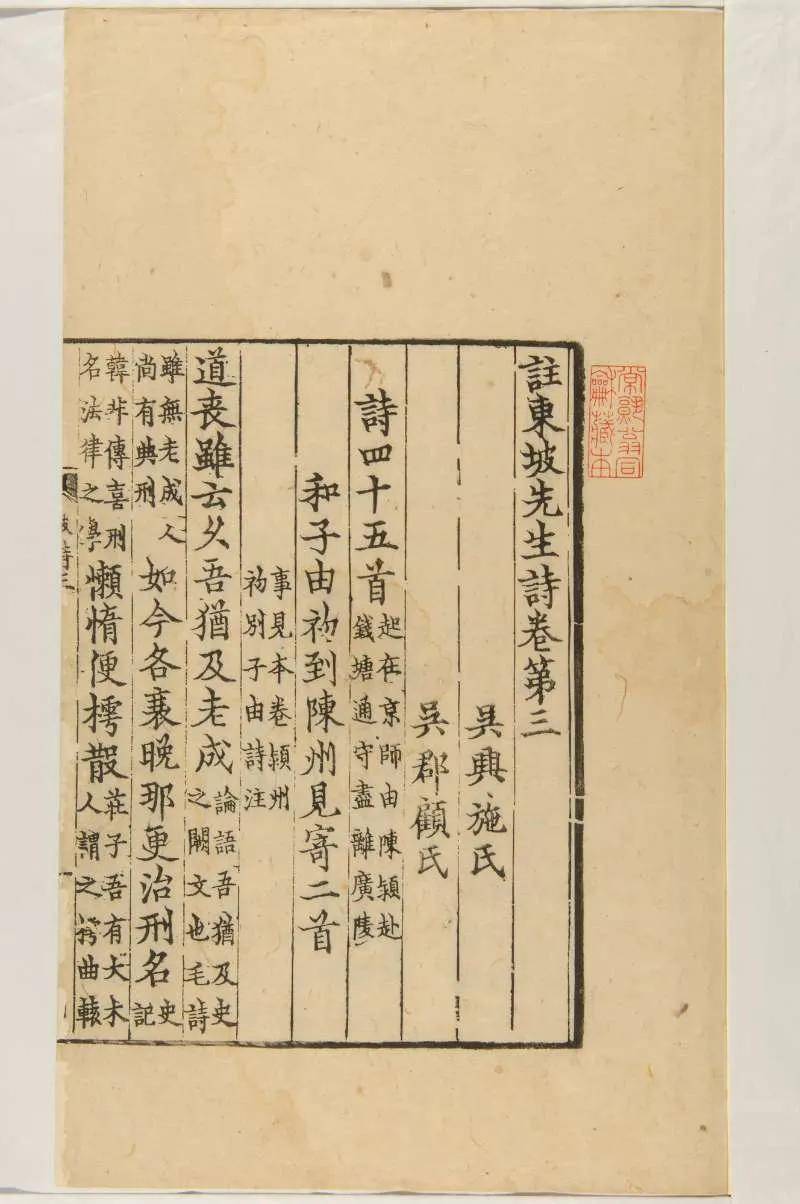 常熟翁同
龢藏本
註東坡先生詩卷第三
吳興施氏
吳郡顧氏
詩四十五首起在京師由陳潁赴錢塘通守盡離廣陵
和子由初到陳州見寄二首
事見本卷潁州初別子由詩注
道丧雖云久吾猶及老成論語吾猶及史之闕文也毛詩
雖無老成人尚有典刑如今各衰晚那更治刑名史記
韓非傳喜刑名法律之學懶惰便樗散莊子吾有大木人謂之樗曲轅